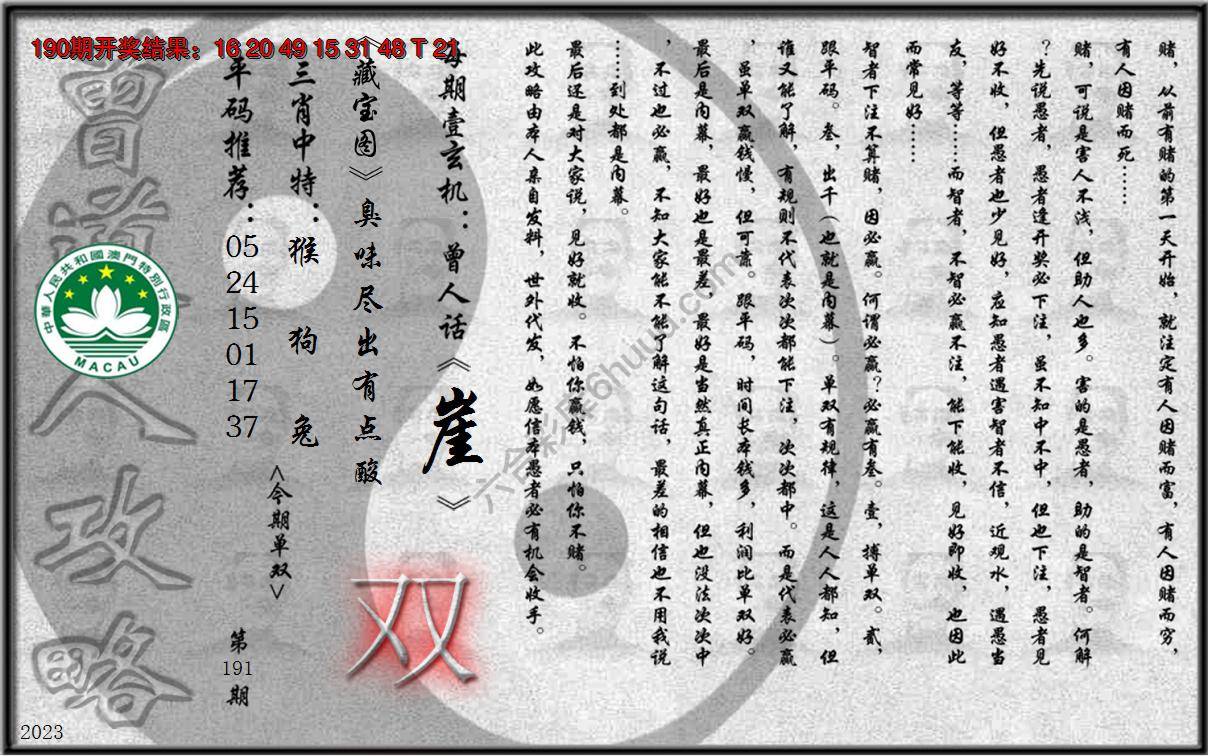 190期开奖结果：16 20 49 15 31 48 T 21
赌，从前有赌的第一天开始，就注定有人因赌而富，有人因赌而穷，
有人因赌而死……
赌，可说是害人不浅，但助人也多。害的是愚者，助的是智者。何解
？先说愚者，愚者逢开奖必下注，虽不知中不中，但也下注，愚者见
好不收，但愚者也少见好，应知愚者遇害智者不信，近观水，遇愚当
友，等等……而智者，不智必赢不注，能下能收，见好即收，也因此
而常见好……
智者下注不算赌，因必赢。何谓必赢？必赢有叁。壹，搏单双。贰，
跟平码。叁，出千（也就是内幕）。单双有规律，这是人人都知，但
谁又能了解，有规则不代表次次都能下注，次次都中。而是代表必赢
，虽单双赢钱慢，但可靠。跟平码，时间长本钱多，利润比单双好。
最后是内幕，最好也是最差，最好是当然真正内幕，但也没法次次中
，不过也必赢，不知大家能不能了解这句话，最差的相信也不用我说
……到处都是内幕。
最后还是对大家说，见好就收。不怕你赢钱，只怕你不赌。
此攻略由本人亲自发料，世外代发，如愿信本愚者必有机会收手。
每期壹玄机：曾人话《崖》
《藏宝图》臭味尽出有点酸
双
三肖中特：猴 狗 兔
<今期单双>
平码推荐：05 24 15 01 17 37
第191期
曾道人攻略
中華人民共和國澳門特別行政區
MACAU
六合彩库6huuu.com
2023